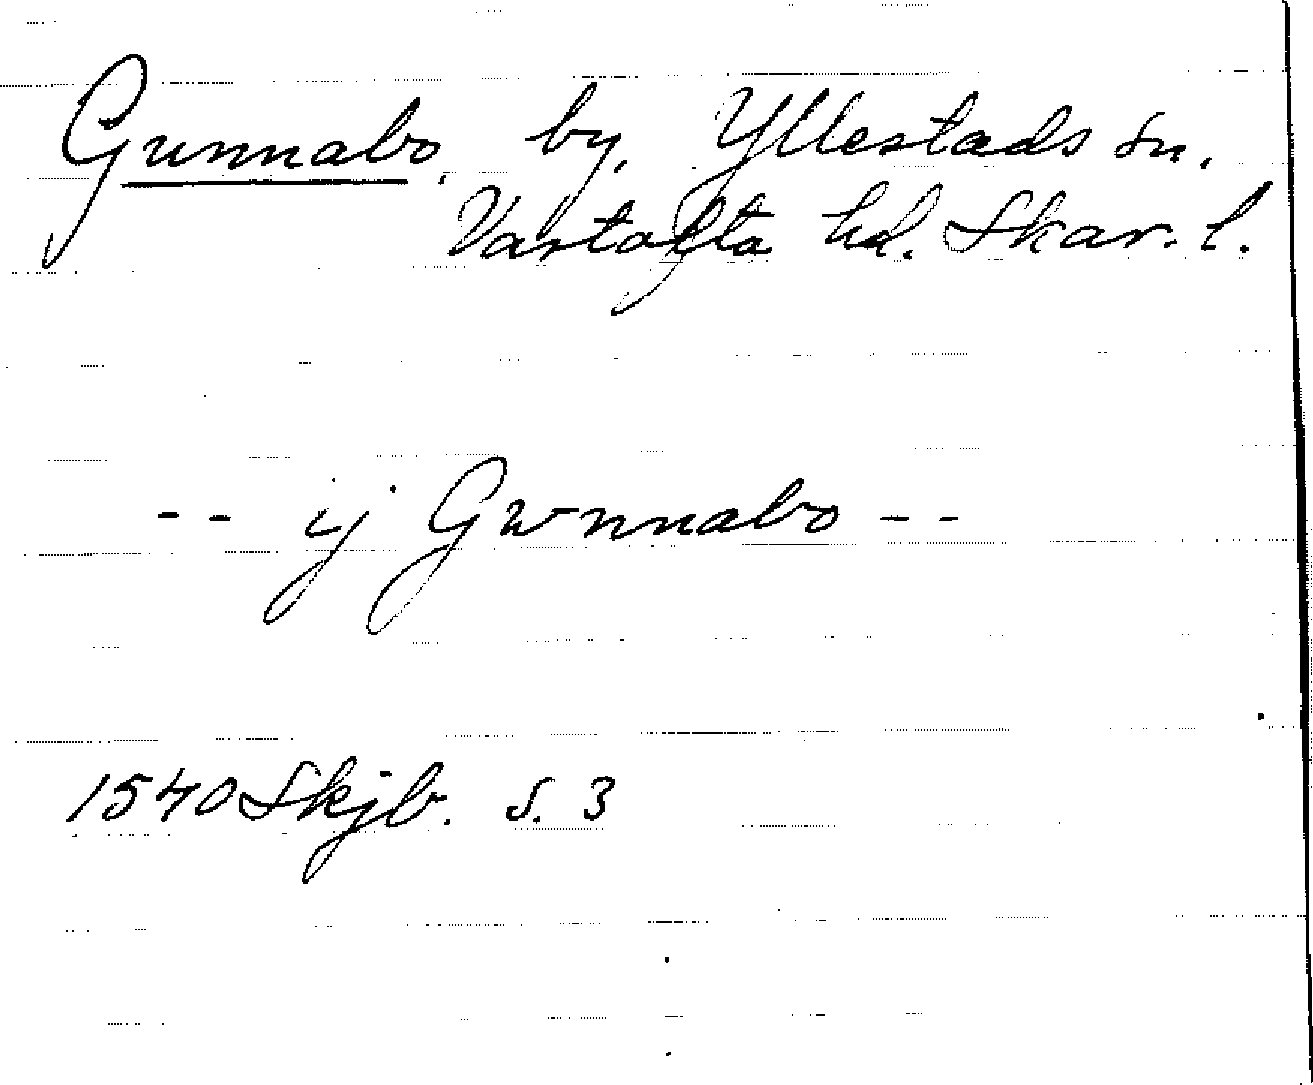 Gunnabo, by, Yllestads sn.
Vartofta hd. Skar. l.
- - ij Gwnnabo - -
1540 Skjb. s. 3